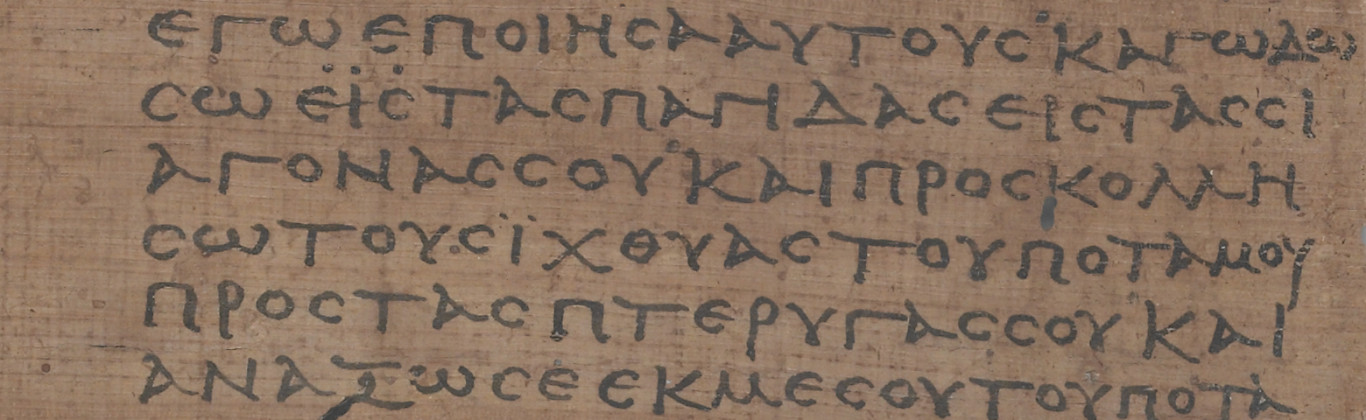 ΕΓΩ ΕΠΟΙΗϹΑ ΑΥΤΟΥϹ· ΚΑΓΩ ΔΩ
ϹΩ ΕΙϹ ΤΑϹ ΠΑΓΙΔΑϹ ΕΙϹ ΤΑϹ ϹΙ
ΑΓΟΝΑϹ ϹΟΥ· ΚΑΙ ΠΡΟϹΚΟΛΛΗ
ϹΩ ΤΟΥϹ ΪΧΘΥΑϹ ΤΟΥ ΠΟΤΑΜΟΥ
ΠΡΟϹ ΤΑϹ ΠΤΕΡΥΓΑϹ ϹΟΥ ΚΑΙ
ΑΝΑΞΩ ϹΕ ΕΚ ΜΕϹΟΥ ΤΟΥ ΠΟΤΑ